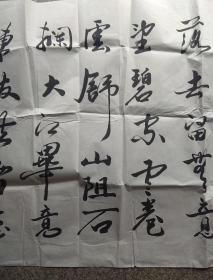 落去留無意
望碧空雲卷
雲舒山阻石
攔大江畢竟
東